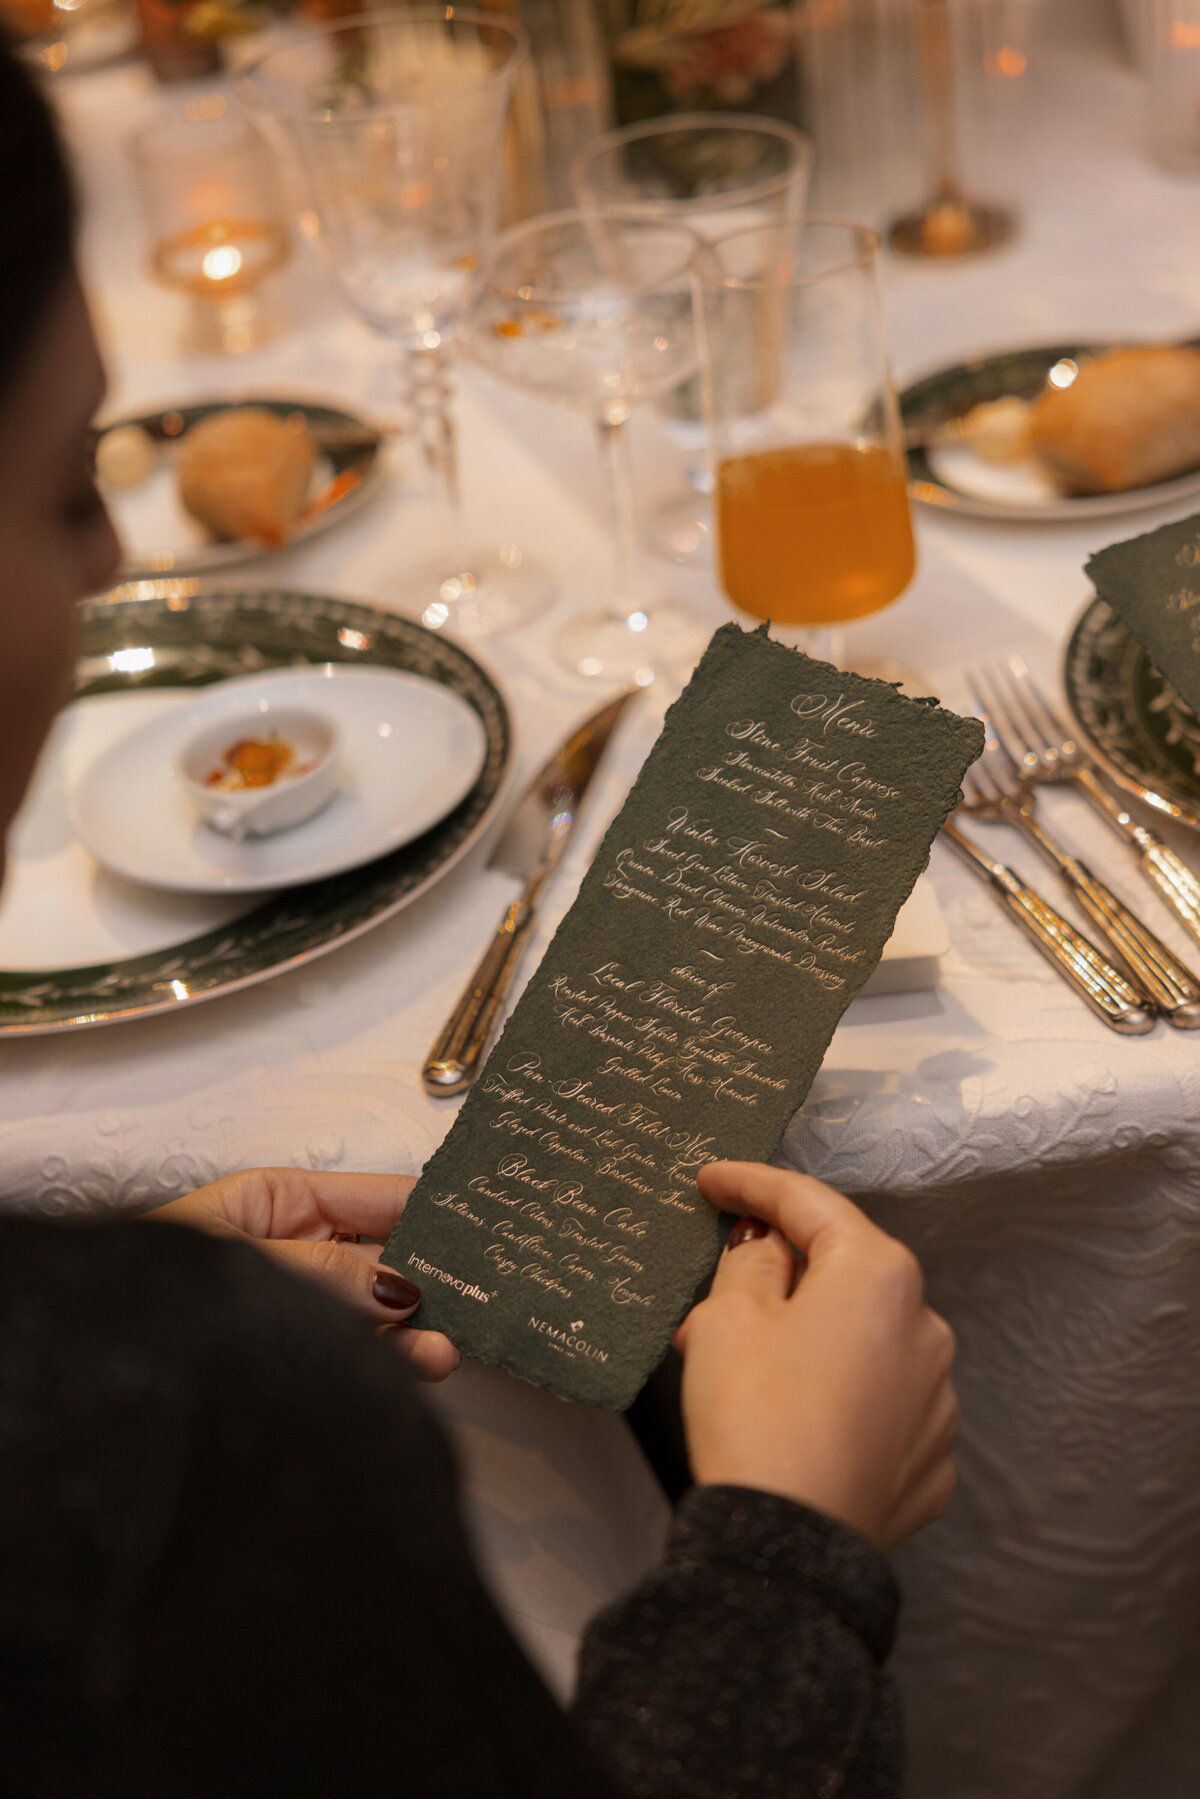 Menu
Stone Fruit Caprese
Stracciatella, Herb Nectar
Smoked Salt with Thai Basil
Winter Harvest Salad
Sweet Gem Lettuce, Toasted Almonds
Quinoa, Dried Cherries, Watermelon Radish
Tangerine, Red Wine Pomegranate Dressing
choice of
Local Florida Grouper
Roasted Pepper Sofrito, Vegetable Sancocho
Herb Basmati Pilaf, Hass Avocado
Grilled Lemon
Pan-Seared Filet Mign
Truffled Potato and Leek Gratin, Haric
Glazed Cippolini, Bordelaise Sauce
Black Bean Cake
Candied Citrus, Toasted Grains
Sultanas, Cauliflower, Capers, Arugula
Crispy Chickpeas
Internova plus+
NEMACOLIN